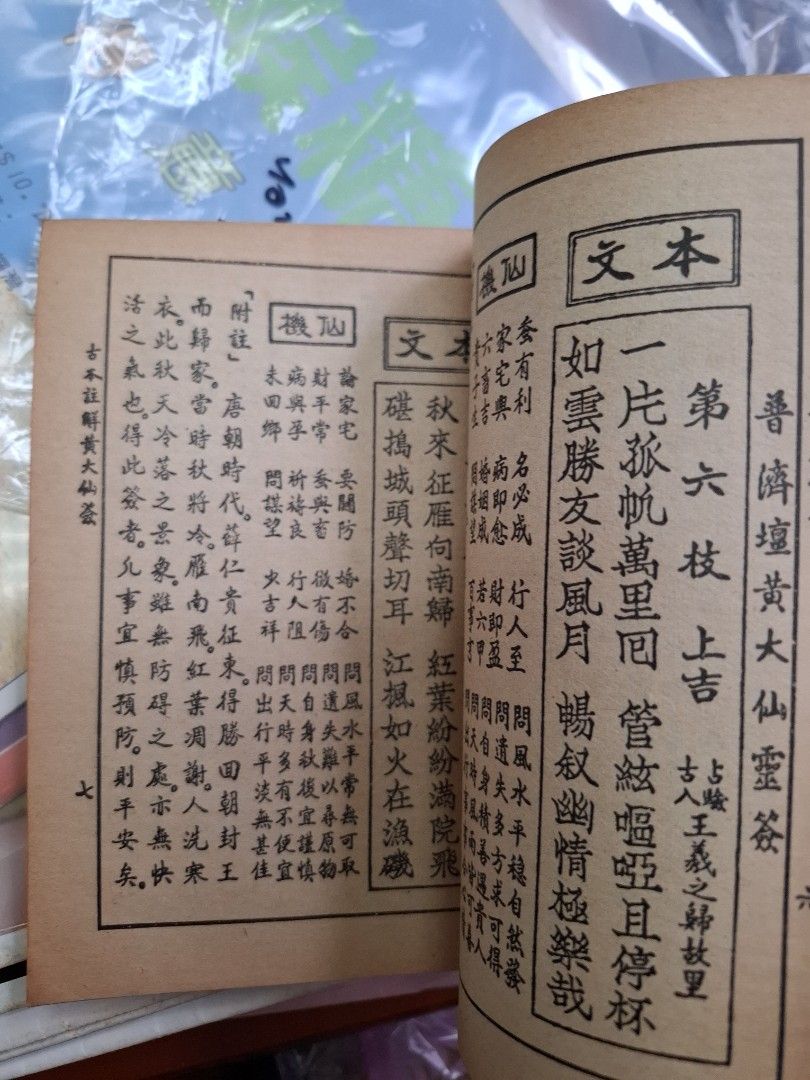 普濟壇黃大仙靈簽
六
本文
第六枝 上吉 占驗古人王羲之歸故里
一片孤帆萬里囘 管絃嘔啞且停杯
如雲勝友談風月 暢叙幽情極樂哉
仙機
蚕有利 名必成 行人至 問風水平穩自然發
家宅興 病即愈 財即盈 問遺失多方求可得
六畜吉 婚姻成 若六甲 問自身積善遇貴人
本文
秋來征雁向南歸 紅葉紛紛滿院飛
碪搗城頭聲切耳 江楓如火在漁磯
仙機
論家宅 要關防 婚不合 問風水平常無可取
財平常 蚕與畜 微有傷 問遺失難以尋原物
病與孕 祈禱良 行人阻 問自身秋後宜謹慎
未回鄉 問謀望 少吉祥 問天時多有不便宜
問出行平淡無甚佳
「附註」唐朝時代。薛仁貴征東。得勝回朝封王
而歸家。當時秋將冷。雁南飛。紅葉凋謝。人洗寒
衣。此秋天冷落之景象。雖無防碍之處。亦無快
活之氣也。得此簽者。凡事宜慎預防。則平安矣。
古本註解黃大仙簽
七